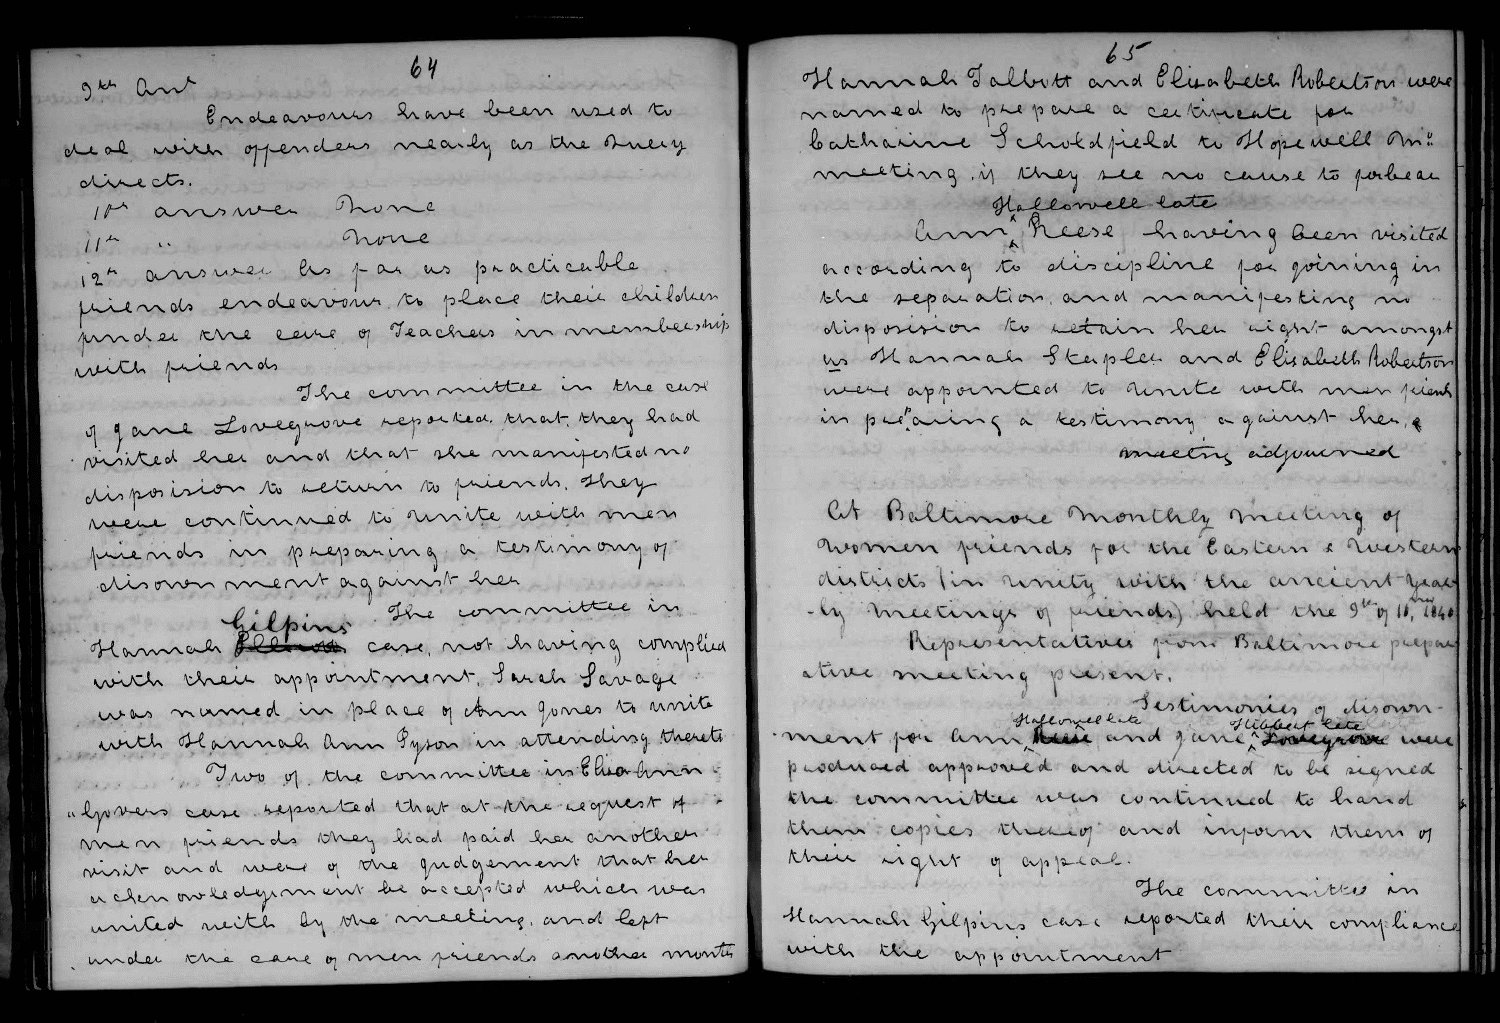 64
9th Ans
Endeavours have been used to
deal with offenders nearly as the Query
directs.
10th answer None
11th " None
12th answer As far as practicable
friends endeavour to place their children
under the care of Teachers in membership
with friends
The committee in the case
of Jane Lovegrove reported that they had
visited her and that she manifested no
disposision to return to friends. They
were continued to unite with men
friends in preparing a testimony of
disownment against her
The committee in
Gilpins
Hannah case, not having complied
with their appointment. Sarah Savage
was named in place of Ann Jones to unite
with Hannah Ann Tyson in attending thereto
Two of the committee in Eliza Ann
Govers case reported that at the request of
men friends they had paid her another
visit and were of the judgement that her
acknowledgement be accepted which was
united with by the meeting, and left
under the care of men friends another month
65
Hannah Talbott and Elisabeth Robertson were
named to prepare a certificate for
Catharine Scholdfield to Hopewell Mo
meeting if they see no cause to forbear
Hallowell late
Ann ^ Reese having been visited
according to discipline for joining in
the separation and manifesting no
disposision to retain her right amongst
us Hannah Stapler and Elisabeth Robertson
were appointed to unite with men friends
in preparing a testimony against her.
meeting adjourned
At Baltimore Monthly Meeting of
women friends for the Eastern & Western
districts (in unity with the ancient year
-ly meetings of friends) held the 9th of 10, mo 1840
Representatives from Baltimore prepar
ative meeting present.
Testimonies of disown-
Hallowell late Hibbert late
ment for Ann ^ Reese and Jane ^ Lovegrove were
produced approved and directed to be signed
the committee was continued to hand
them copies thereof and inform them of
their right of appeal.
The committee in
Hannah Gilpins case reported their compliance
with the appointment